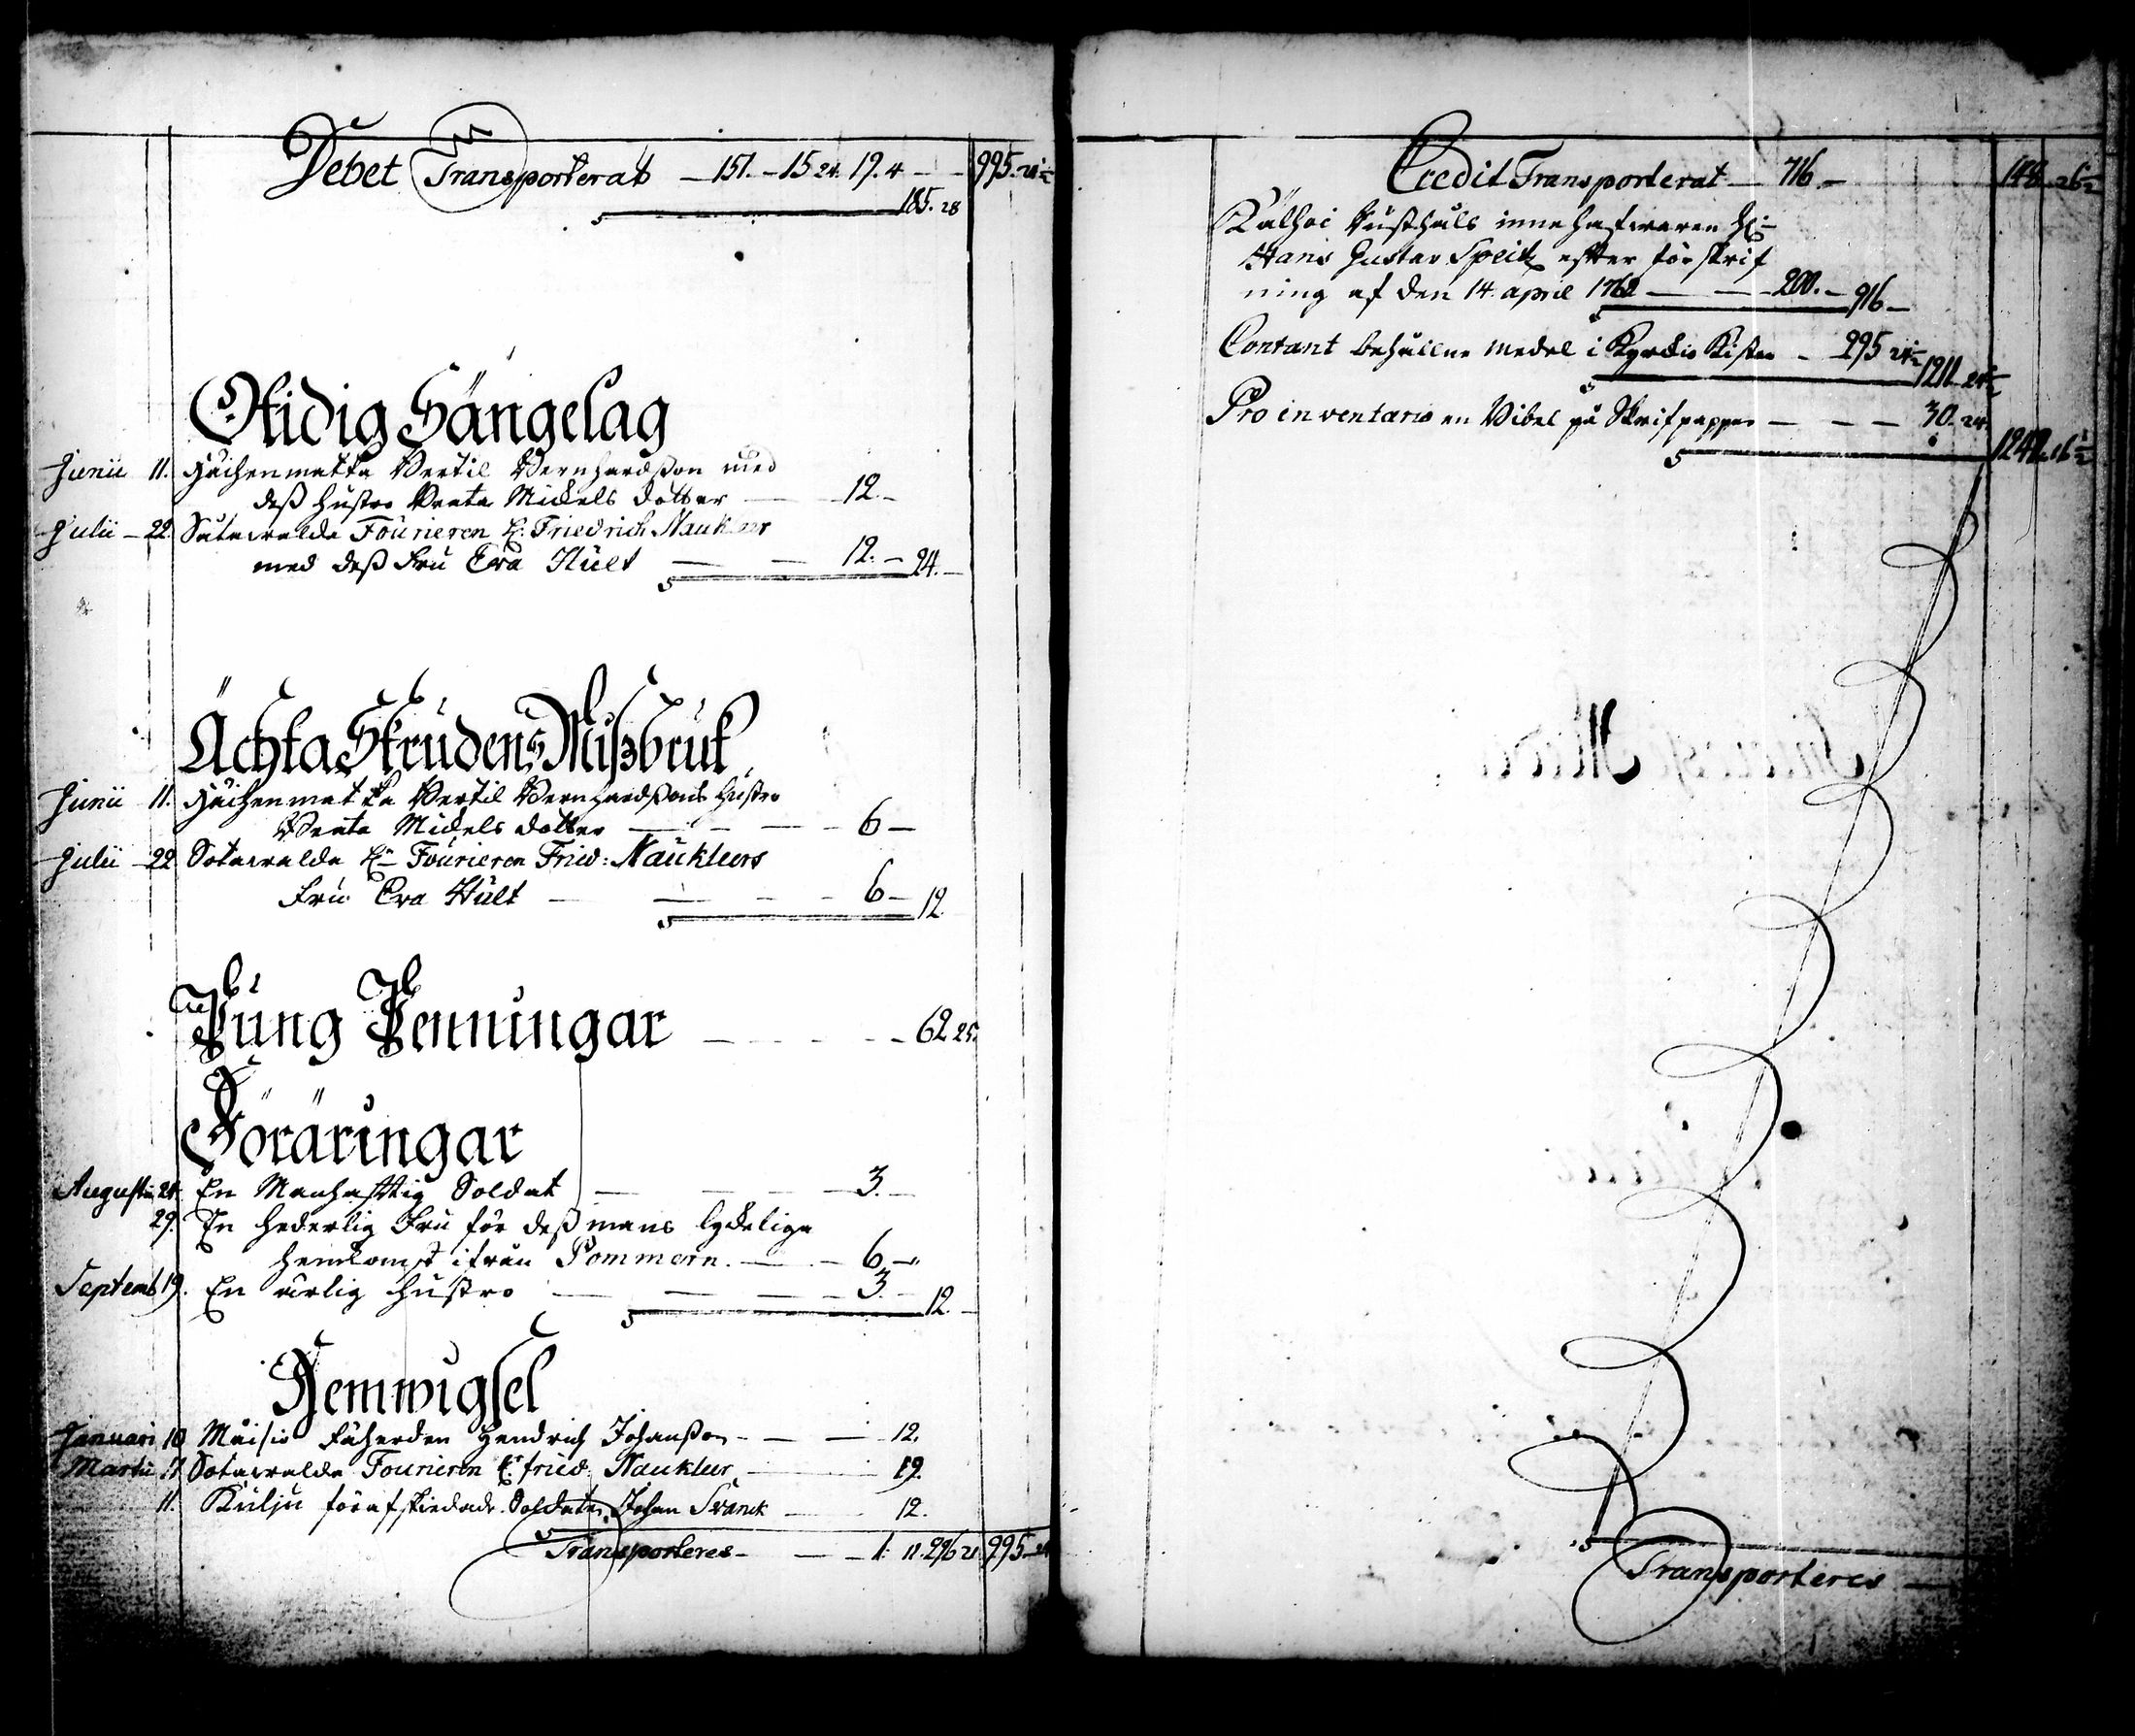 Debet Transporterat — 151. — 15 24. 19. 4 — — 995. 24½
185. 28
Otidig Sängelag
Junii 11. Hächenmatka Bertil Bernhardßon med
deß hustro Beata Mickels dotter — 12. —
Julii — 22. Satawalda Fourieren H. Friedrich Naukleer
med deß Fru Eva Hult — — 12. — 24. —
Ächta Skrudens Mißbruk
Junii 11. Hächenmatka Bertil Bernhardßons hustro
Beata Mickels dotter — — — 6 —
Julii — 22 Satawalda H. Fourieren Fried: Naukleers
Fru Eva Hult — — — — 6 — 12
Pung Penningar — — — — 62 25.
Föräringar
Augusti 24. En Manhafftig Soldat — — — 3. —
29. En hederlig Fru för deß mans lyckeliga
hemkomst ifrån Pommern. — — 6 —
Septemb 19. En ärlig hustro — — — — 3. — 12. —
Hemwigsel
Januari 10 Fäherden Hendrich Johanßon — — — 12.
Martii 7. Satawalda Fourieren H. fried: Naukleer — 19.
11. Kulju för afskiedade Soldaten Johan Svanck — 12.
Transporteres — — — 1: 11. 296 21 995 — 24
Credit Transporterat — 716. — 148 — 26½
Kålhoi Rusthåls innehafwaren H:
Hans Gustav Speitz effter förskrif
ning af den 14. april 1762 — — 200. — 916 —
Contant behållne medel i Kyrckio Kistan — 295 24½ 1211 — 24½
Pro inventario en Bibel på Skrifpapper — — — 30. 24.
1242. 16½
Transporteres —